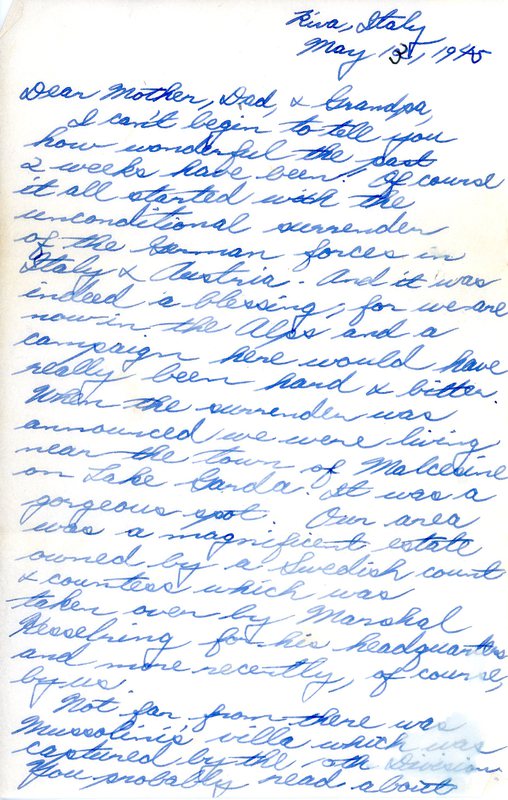 Riva, Italy
May 13, 1945
Dear Mother, Dad, & Grandpa,
I can't begin to tell you
how wonderful the past
2 weeks have been! Of course
it all started with the
unconditional surrender
of the German forces in
Italy & Austria. And it was
indeed a blessing, for we are
now in the Alps and a
campaign here would have
really been hard & bitter.
When the surrender was
announced we were living
near the town of Malcesine
on Lake Garda. It was a
gorgeous spot. Our area
was a magnificent estate
owned by a Swedish count
& countess which was
taken over by Marshal
Kesselring for his headquarters
and more recently, of course,
by us.
Not far from there was
Mussolini's villa which was
captured by the Division
You probably read about